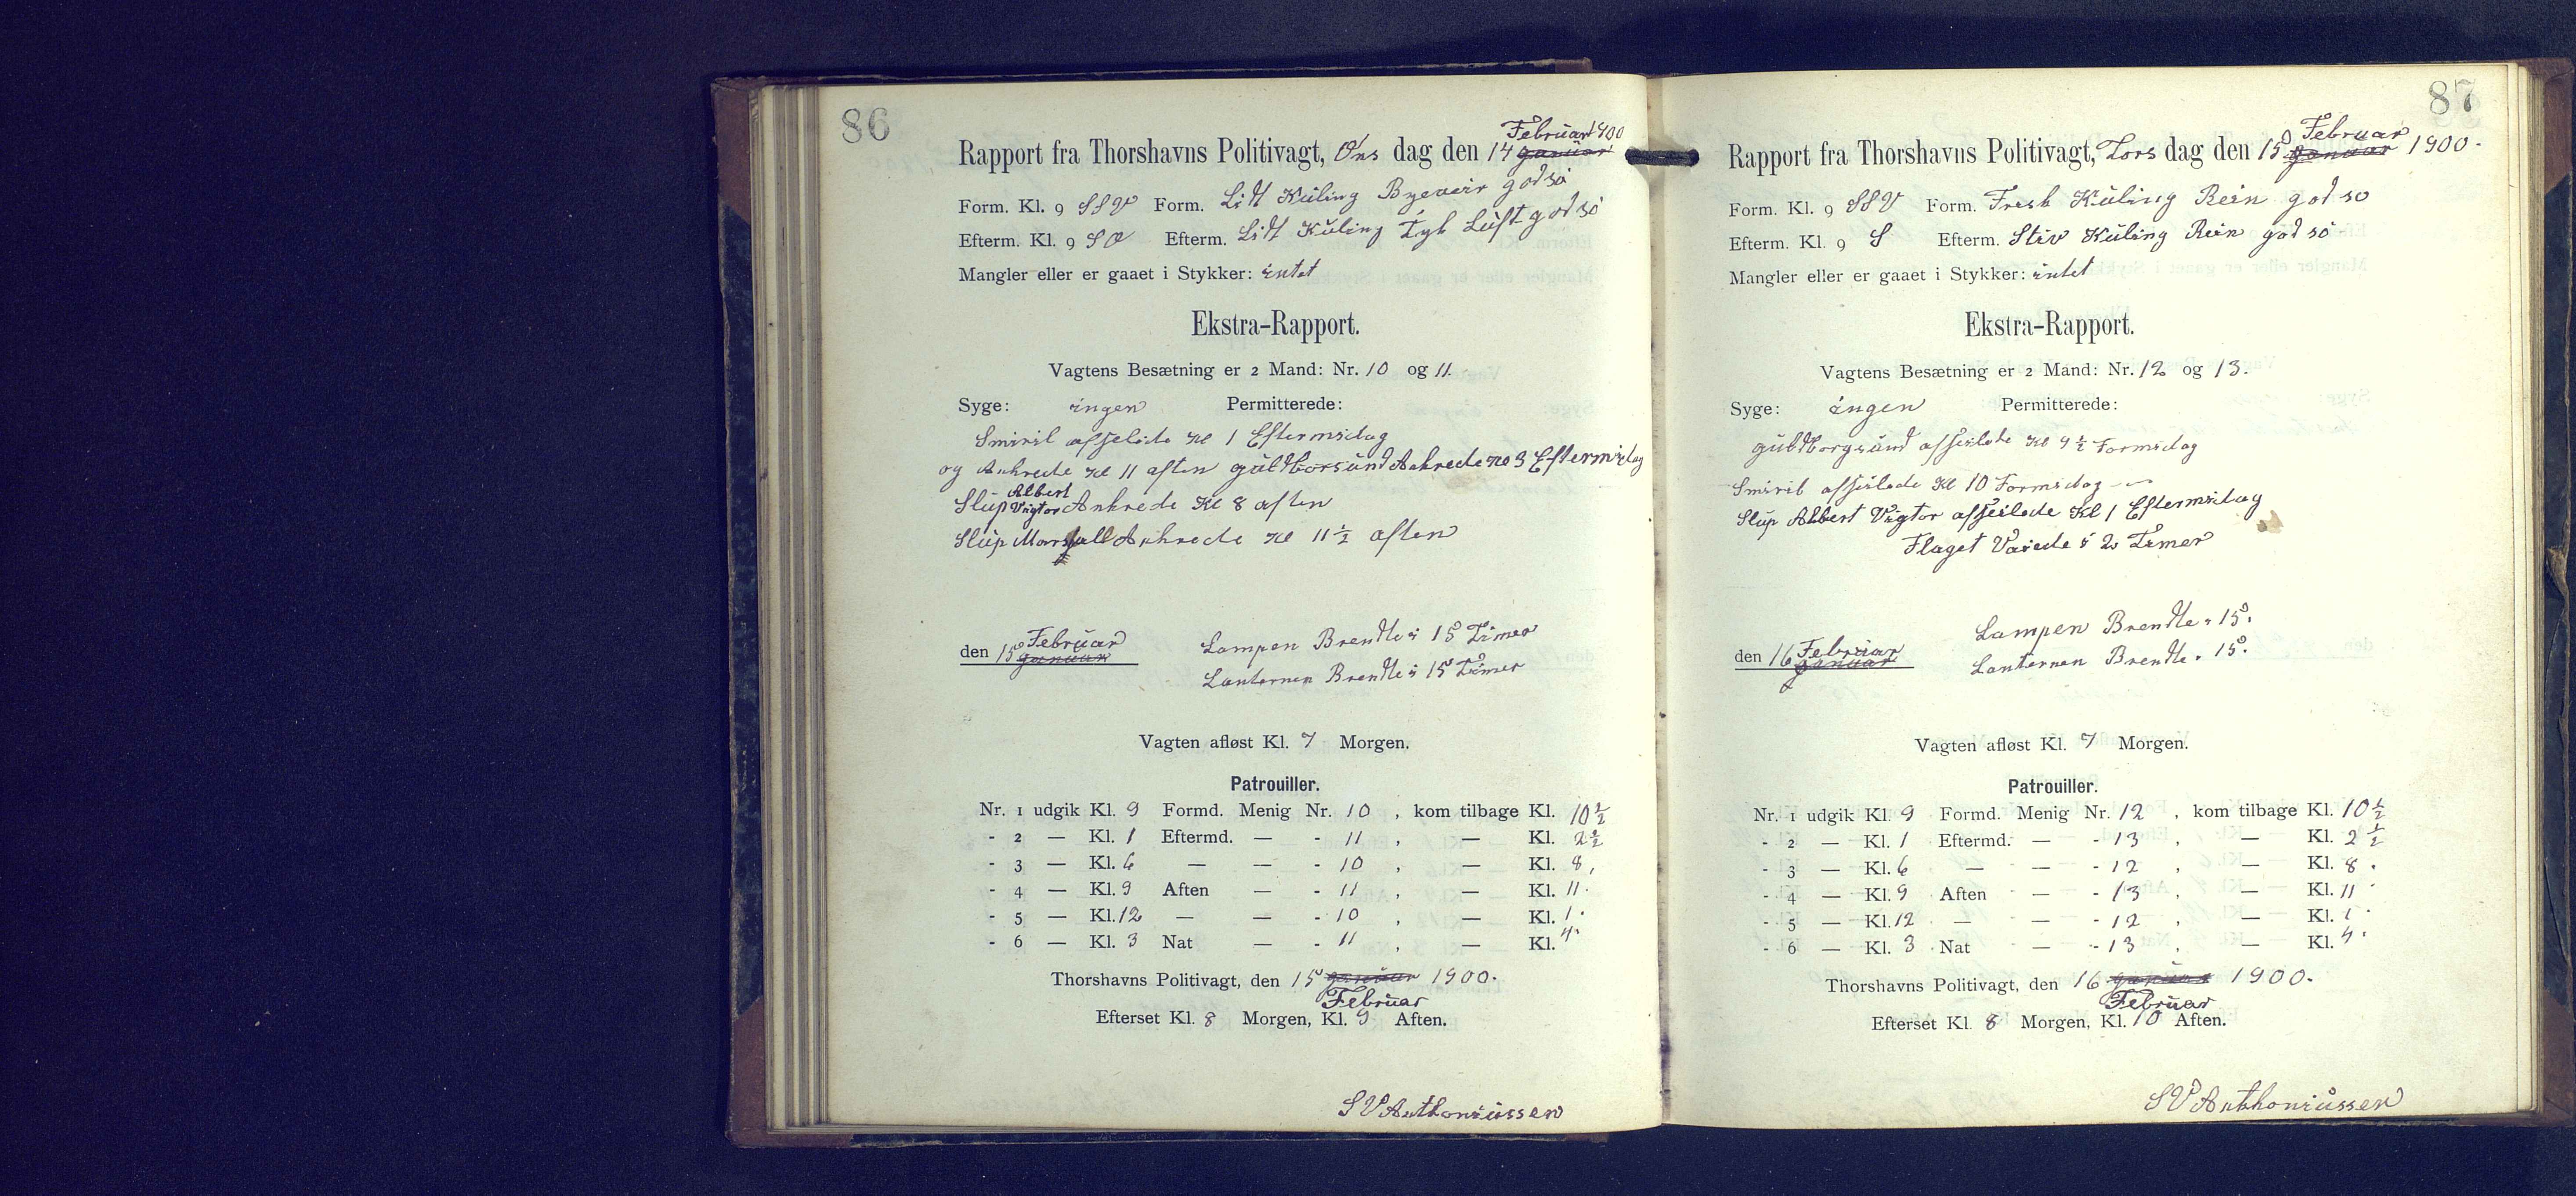 86
Februar 1900
Rapport fra Thorshavns Politivagt, Ons dag den 14 Januar
Form. Kl. 9 SSV Form. Lidt Kuling Byeveir god sö
Efterm. Kl. 9 SO Efterm. Lidt Kuling Tyk Luft god sö
Mangler eller er gaaet i Stykker: intet
Ekstra-Rapport.
Vagtens Besætning er 2 Mand: Nr. 10 og 11.
Syge: ingen Permitterede:
Smiril afseilede Kl 1 Eftermidag
og Ankrede Kl 11 aften guldborsund Ankrede Kl 3 Eftermidag
Albert
Slup Vigtor Ankrede Kl 8 aften
Slup Marshall Ankrede Kl 11 1/2 aften
Februar
den 15 Januar
Lampen Brendte i 15 Timer
Lanternen Brendte i 15 Timer
Vagten afløst Kl. 7 Morgen.
Patrouiller.
Nr. 1 udgik Kl. 9 Formd. Menig Nr. 10 , kom tilbage Kl. 10 1/2
- 2 — Kl. 1 Eftermd. — - 11 , — Kl. 2 1/2
- 3 — Kl. 6 — — - 10 , — Kl. 8,
- 4 — Kl. 9 Aften — - 11 , — Kl. 11.
- 5 — Kl. 12 — — - 10 , — Kl. 1.
- 6 — Kl. 3 Nat — - 11 , — Kl. 4.
Thorshavns Politivagt, den 15 Januar 1900.
Februar
Efterset Kl. 8 Morgen, Kl. 9 Aften.
S V Anthoniussen
87
Februar
Rapport fra Thorshavns Politivagt, Tors dag den 15 Januar 1900.
Form. Kl. 9 SSV Form. Fresk Kuling Rein god so
Efterm. Kl. 9 S Efterm. Stiv Kuling Rein god sö
Mangler eller er gaaet i Stykker: intet
Ekstra-Rapport.
Vagtens Besætning er 2 Mand: Nr. 12 og 13.
Syge: ingen Permitterede:
guldborgsund afseilede Kl 9 1/2 Formidag
Smiril afseilede Kl 10 Formidag
Slup Albert Vigtor afseilede Kl 1 Eftermidag
Flaget Vaiede i 2 Timer
Februar
den 16 Januar
Lampen Brendte " 15.
Lanternen Brendte " 15.
Vagten afløst Kl. 7 Morgen.
Patrouiller.
Nr. 1 udgik Kl. 9 Formd. Menig Nr. 12 , kom tilbage Kl. 10 1/2
- 2 — Kl. 1 Eftermd. — - 13 , — Kl. 2 1/2
- 3 — Kl. 6 — — - 12 , — Kl. 8.
- 4 — Kl. 9 Aften — - 13 , — Kl. 11
- 5 — Kl. 12 — — - 12 , — Kl. 1
- 6 — Kl. 3 Nat — - 13 , — Kl. 4.
Thorshavns Politivagt, den 16 Januar 1900.
Februar
Efterset Kl. 8 Morgen, Kl. 10 Aften.
S V Anthoniussen